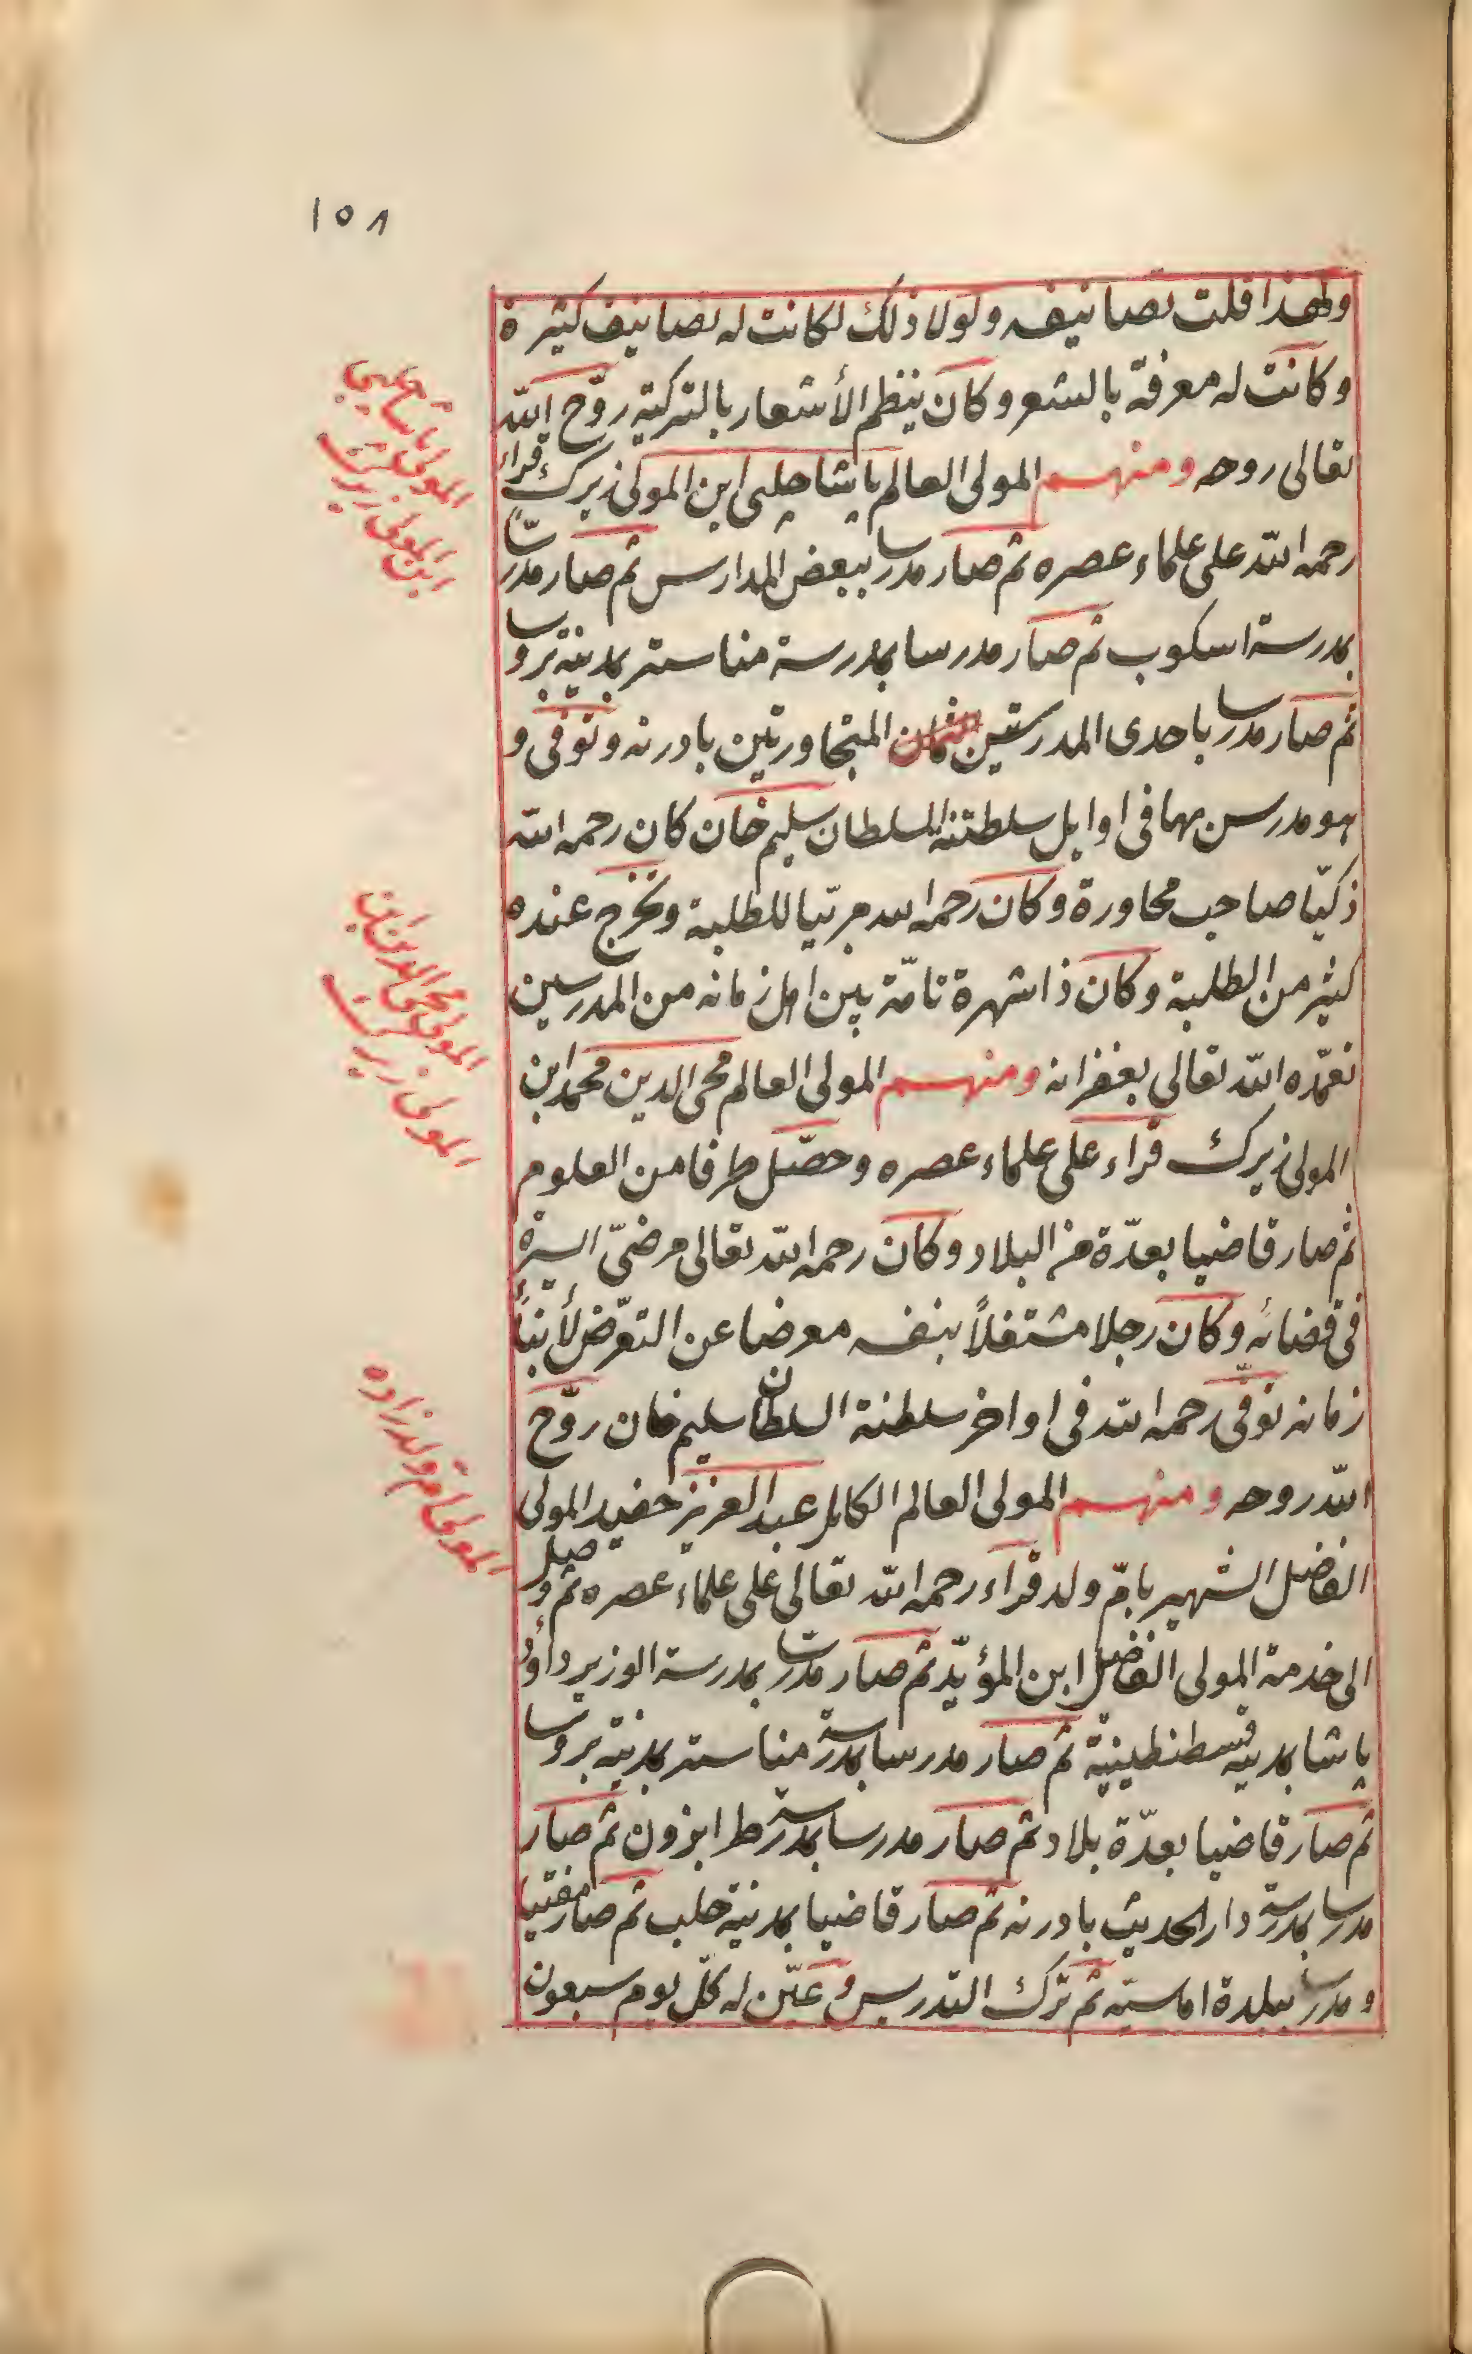 ١٥٨
ولهذا قلت تصانيفه ولولا ذلك لكانت له تصانيف كثيرة
وكانت له معرفة بالشعر وكان ينظم الأشعار بالتركية روّح الله
تعالى روحه ومنهم المولى العالم باشا چلبى ابن المولى زيرك قراء
رحمه الله على علماء عصره ثم صار مدرسا ببعض المدارس ثم صار مدرسا
بمدرسة اسكوب ثم صار مدرسا بمدرسة مناستر بمدينة بروسا
ثم صار مدرسا باحدى المدرستين المتجاورتين بادرنه وتوفى و
هو مدرس بها فى اوايل سلطنة السلطان سليم خان كان رحمه الله
ذكيّا صاحب محاورة وكان رحمه الله مربّيا للطلبة وتخرج عنده
كثير من الطلبة وكان ذا شهرة تامّة بين اهل زمانه من المدرسين
تغمّده الله تعالى بغفرانه ومنهم المولى العالم محى الدين محمد ابن
المولى زيرك قراء على علماء عصره وحصّل طرفا من العلوم
ثم صار قاضيا بعدّة من البلاد وكان رحمه الله تعالى مرضىّ السيرة
فى قضائه وكان رجلا مشتغلاً بنفسه معرضا عن التعرّض لأبناء
زمانه توفّى رحمه الله فى اواخر سلطنة السلطان سليم خان روّح
الله روحه ومنهم المولى العالم الكامل عبد العزيز حفيد المولى
الفاضل الشهير بامّ ولد قراء رحمه الله تعالى على علماء عصره ثم وصل
الى خدمة المولى الفاضل ابن المؤيّد ثم صار مدرسا بمدرسة الوزير داود
پاشا بمدينة قسطنطينية ثم صار مدرسا بمدرسة مناستر بمدينة بروسا
ثم صار قاضيا بعدّة بلاد ثم صار مدرسا بمدرسة طرابزون ثم صار
مدرسا بمدرسة دار الحديث بادرنه ثم صار قاضيا بمدينة حلب ثم صار مفتيا
ومدرسا ببلدة اماسيه ثم ترك التدريس وعيّن له كلّ يوم سبعون
المولى پاشا چلبى
ابن المولى زيرك
المولى محى الدين ابن
المولى زيرك
المولى ام ولد زاده